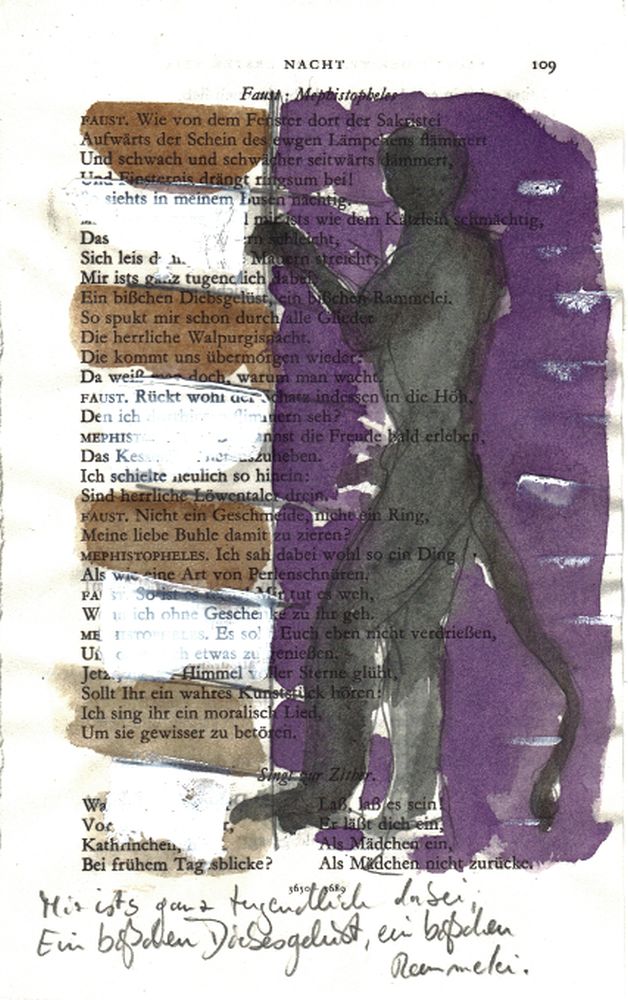 NACHT 109
Faust · Mephistopheles
FAUST. Wie von dem Fenster dort der Sakristei
Aufwärts der Schein des ewgen Lämpchens flämmert
Und schwach und schwächer seitwärts dämmert,
Und Finsternis drängt ringsum bei!
siehts in meinem Busen nächtig.
mir ists wie dem Kätzlein schmächtig,
Das schleicht,
Sich leis Mauern streicht;
Mir ists ganz tugendlich dabei,
Ein bißchen Diebsgelüst, ein bißchen Rammelei.
So spukt mir schon durch alle Glieder
Die herrliche Walpurgisnacht.
Die kommt uns übermorgen wieder:
Da weiß man doch, warum man wacht.
FAUST. Rückt wohl der Schatz indessen in die Höh,
Den ich dorthinten flimmern seh?
MEPHIST annst die Freude bald erleben,
Das Kes herauszuheben.
Ich schielte neulich so hinein:
Sind herrliche Löwentaler drein.
FAUST. Nicht ein Geschmeide, nicht ein Ring,
Meine liebe Buhle damit zu zieren?
MEPHISTOPHELES. Ich sah dabei wohl so ein Ding
Als wie eine Art von Perlenschnüren.
FAUST. So ist es recht! Mir tut es weh,
Wenn ich ohne Geschenke zu ihr geh.
MEPHISTOPHELES. Es sollt Euch eben nicht verdrießen,
Um etwas zu genießen.
Jetzt, Himmel voller Sterne glüht,
Sollt Ihr ein wahres Kunststück hören:
Ich sing ihr ein moralisch Lied,
Um sie gewisser zu betören.
Singt zur Zither.
Wa Laß, laß es sein!
Vor Er läßt dich ein,
Kathrinchen, Als Mädchen ein,
Bei frühem Tagesblicke? Als Mädchen nicht zurücke.
3650–3689
Mir ists ganz tugendlich dabei,
Ein bißchen Diebesgelüst, ein bißchen
Rammelei.